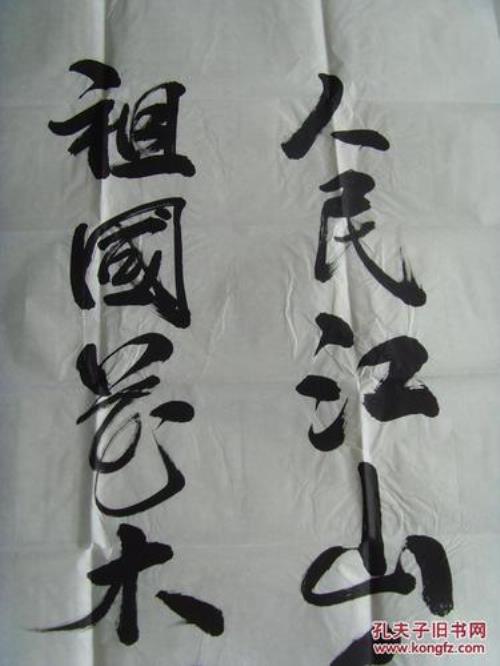 人民江山
祖國花木
孔夫子旧书网
www.kongfz.com